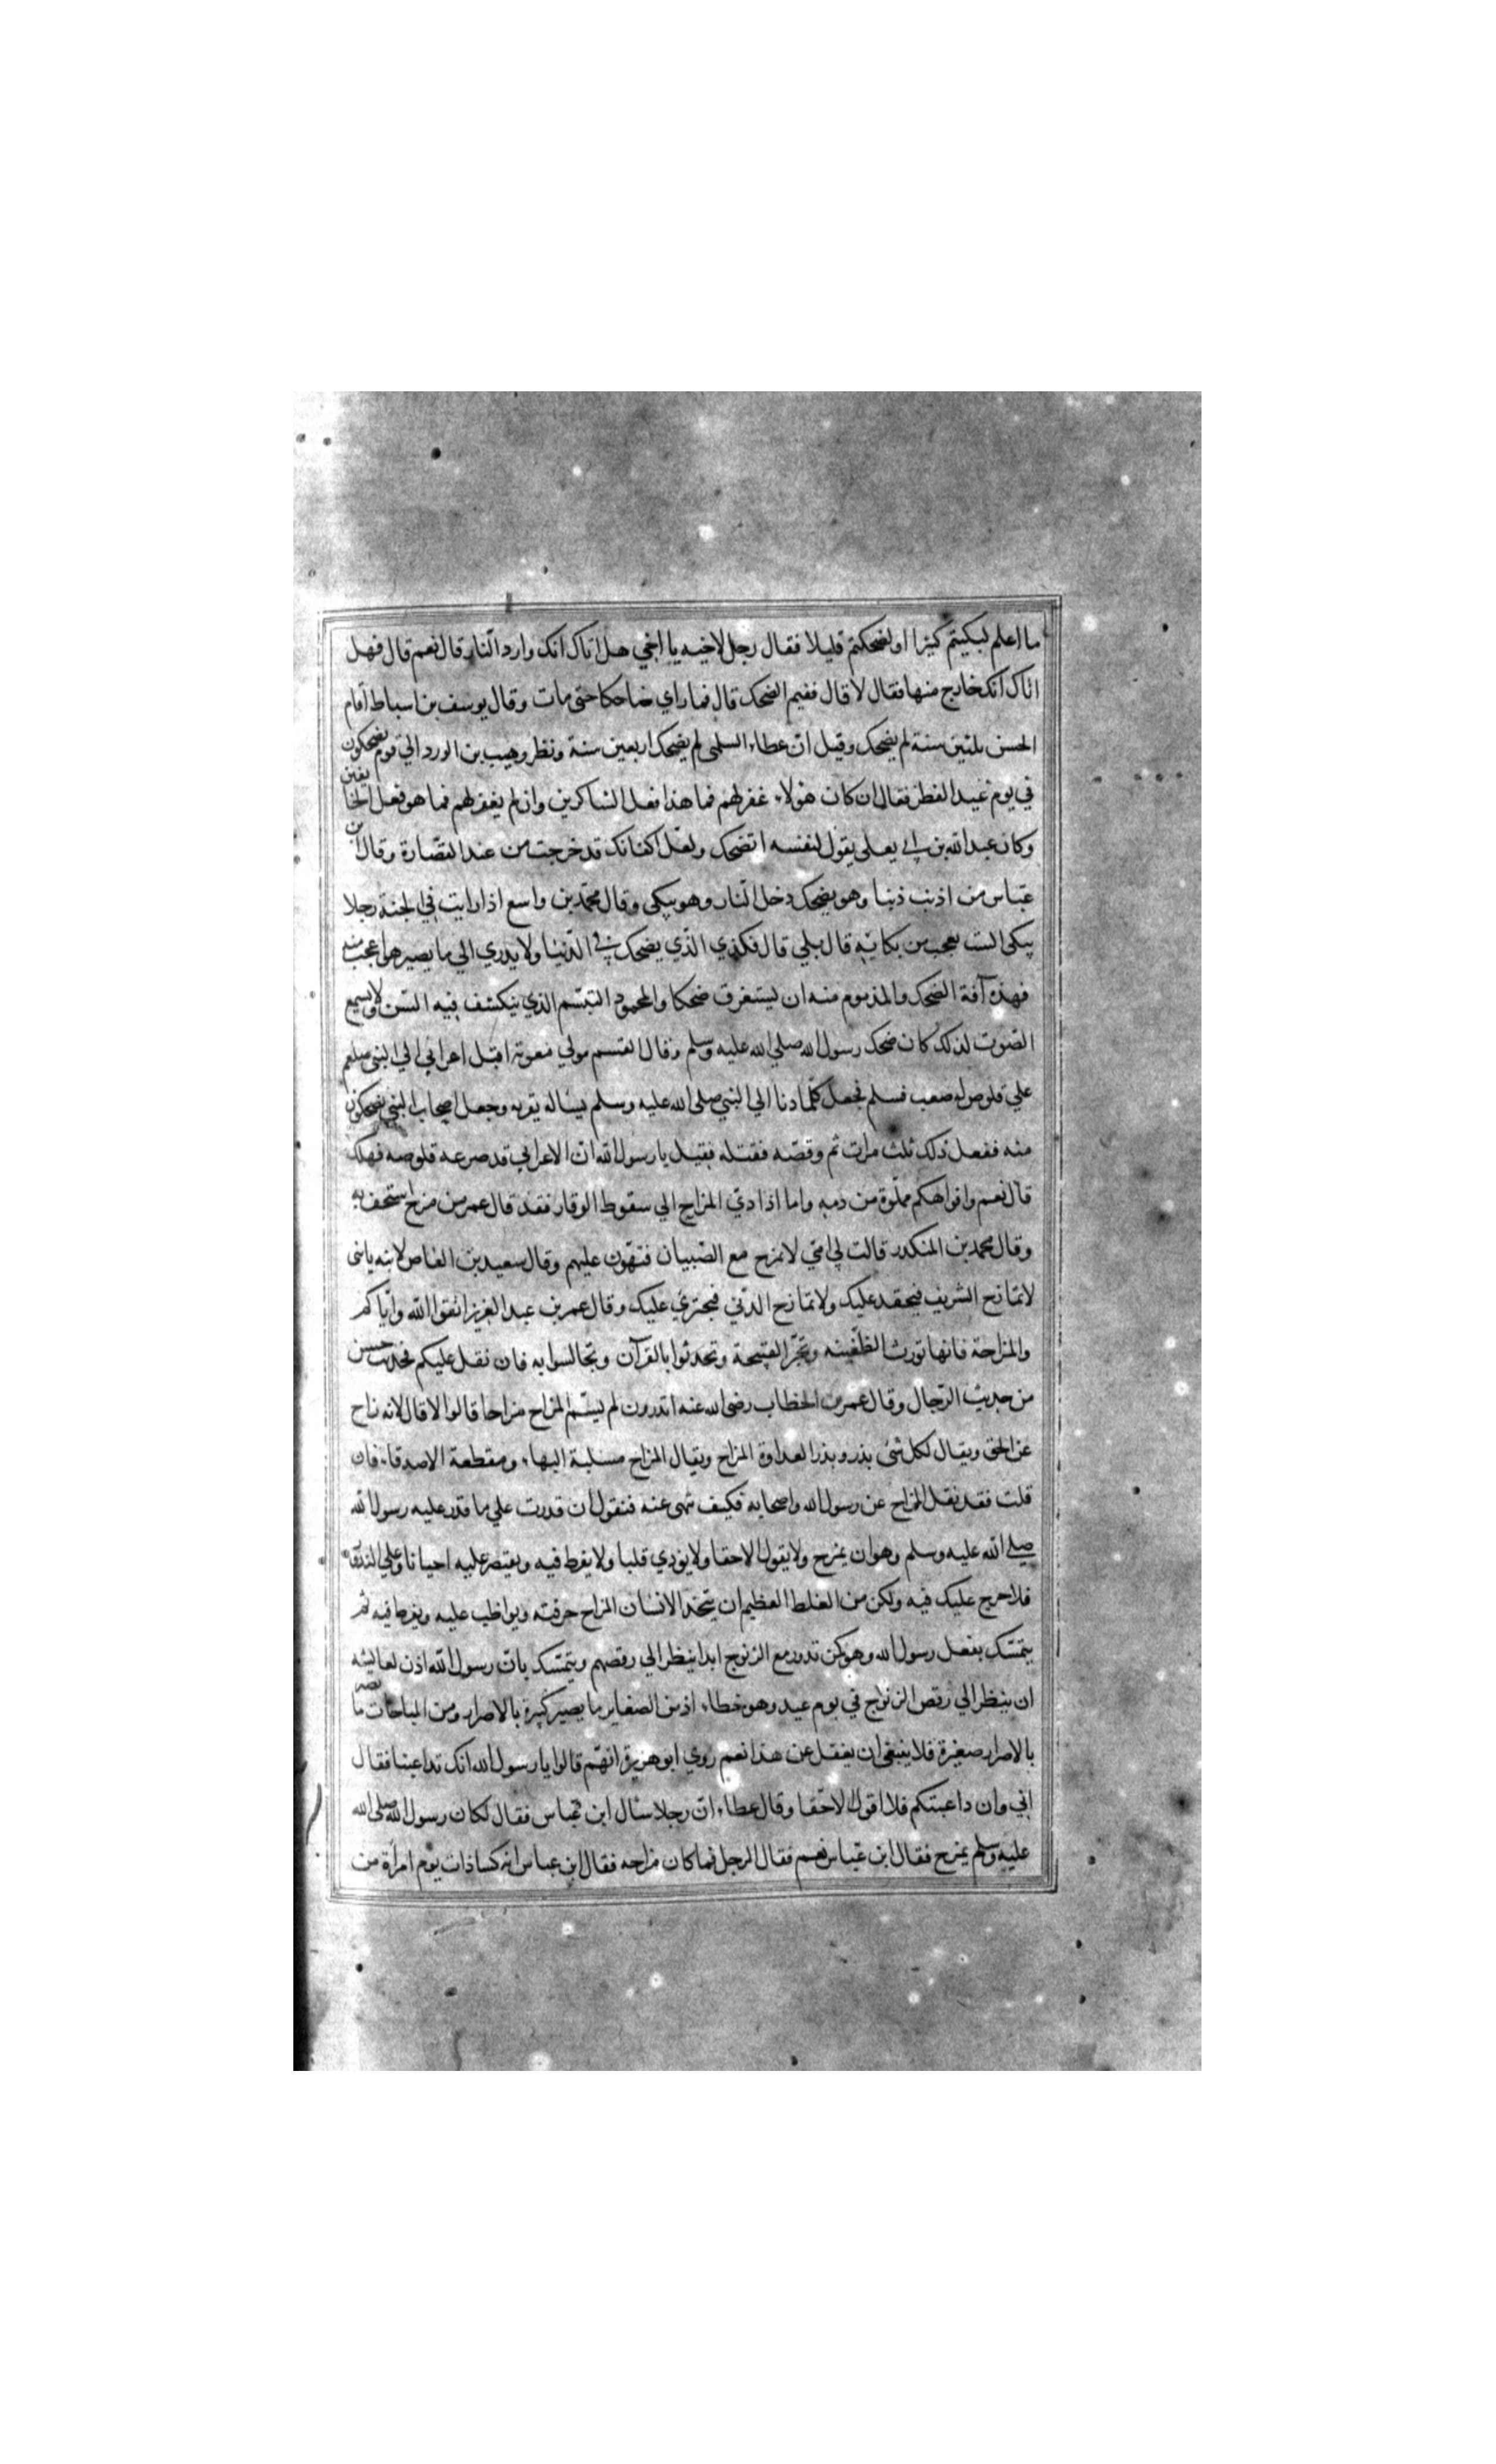 ما اعلم لبكيتم كثيرا ولضحكتم قليلا فقال رجل لاخيه يا اخي هل اتاك انك وارد النار قال نعم قال فهل
اتاك انك خارج منها فقال لا قال ففيم الضحك قال فما راي ضاحكا حتى مات وقال يوسف بن اسباط اقام
الحسن ثلثين سنة لم يضحك وقيل ان عطاء السلمى لم يضحك اربعين سنة ونظر وهيب بن الورد الي قوم يضحكون
في يوم عيد الفطر فقال ان كان هؤلاء غفر لهم فما هذا فعل الشاكرين وان لم يغفر لهم فما هو فعل الخايفين
وكان عبد الله بن ابي يعلى يقول لنفسه اتضحك ولعل اكفانك قد خرجت من عند القصارة وقال ابن
عباس من اذنب ذنبا وهو يضحك دخل النار وهو يبكى وقال محمد بن واسع اذا رايت في الجنة رجلا
يبكى الست تعجب من بكائه قال بلي قال فكذي الذي يضحك في الدنيا ولا يدري الي ما يصير هو اعجب منه
فهذه آفة الضحك والمذموم منه ان يستغرق ضحكا والمحمود التبسم الذي ينكشف فيه السن ولا يسمع
الصوت لذلك كان ضحك رسول الله صلي الله عليه وسلم وقال القسم مولي معوية اقبل اعرابي الي النبي صلعم
علي قلوص له صعب فسلم فجعل كلما دنا الي النبي صلى الله عليه وسلم يساله يقربه وجعل اصحاب النبي يضحكون
منه ففعل ذلك ثلث مرات ثم وقصه فقتله فقيل يا رسول الله ان الاعرابي قد صرعه قلوصه فهلك
قال نعم وافواهكم مملوة من دمه واما اذا ادي المزاح الي سقوط الوقار فقد قال عمر من مزح استخف به
وقال محمد بن المنكدر قالت لي امي لا تمزح مع الصبيان فتهون عليهم وقال سعيد بن العاص لابنه يابنى
لا تمازح الشريف فيحقد عليك ولا تمازح الدني فيجتري عليك وقال عمر بن عبد العزيز اتقوا الله واياكم
والمزاحة فانها تورث الظغينه وتجر القبيحة وتحدثوا بالقرآن وتجالسوا به فان ثقل عليكم فحديث حسن
من حديث الرجال وقال عمر بن الخطاب رضى الله عنه اتدرون لم يسم المزاح مزاحا قالوا لا قال لانه زاح
عن الحق ويقال لكل شى بذر وبذر العداوة المزاح ويقال المزاح مسلبة البهاء ومقطعة الاصدقاء فان
قلت فقد نقل المزاح عن رسول الله واصحابه فكيف نهى عنه فنقول ان قدرت علي ما قدر عليه رسول الله
صلي الله عليه وسلم وهو ان يمزح ولا يقول الا حقا ولا يوذي قلبا ولا يفرط فيه ويقتصر عليه احيانا وعلي الندور
فلا حرج عليك فيه ولكن من الغلط العظيم ان يتخذ الانسان المزاح حرفته ويواظب عليه ويفرط فيه ثم
يتمسك بفعل رسول الله وهو كمن تدور مع الزنوج ابدا ينظر الي رقصهم ويتمسك بان رسول الله اذن لعايشه
ان ينظر الي رقص الزنوج في يوم عيد وهو خطاء اذ من الصغاير ما يصير كبيرة بالاصرار ومن المباحات ما يصير
بالاصرار صغيرة فلا ينبغى ان يغفل عن هذا نعم روي ابو هريرة انهم قالوا يا رسول الله انك تداعبنا فقال
اني وان داعبتكم فلا اقول الا حقا وقال عطاء ان رجلا سأل ابن عباس فقال لكان رسول الله صلى الله
عليه وسلم يمزح فقال ابن عباس نعم فقال الرجل فما كان مزاحه فقال ابن عباس انه كسا ذات يوم امراة من